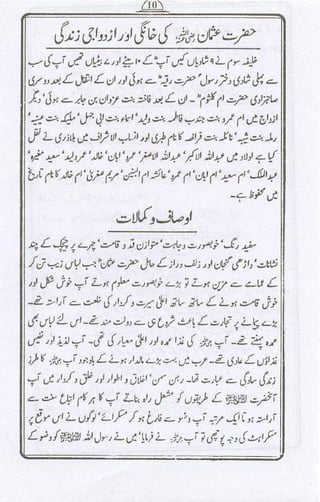 10
حضرت عثمان رضی اللہ عنہ کی خانگی اور ازدواجی زندگی
خلیفہ سوم نے 9 شادیاں کیں آپ کے ۱۰ بیٹے اور ۷ بیٹیاں تھیں آپ کی سب
سے پہلی شادی دختر رسول حضرت رقیہ سے ہوئی اور ان کے انتقال کے بعد دوسری
صاحبزادی حضرت ام کلثوم۔ ان کے بعد فاختہ بنت عزوان بن جابر سے ہوئی' دیگر
ازواج میں ام عمرو بنت جندب فاطمہ بنت ولید' اسماء بنت ابی جہل' ملیکہ بنت عینیہ'
رملہ بنت شیبہ' نائلہ بنت فرافصہ کا نام طبری اور انساب الاشراف میں بلاذری نے نقل
کیا ہے اولاد میں عبداللہ الاکبر' عبداللہ الاصغر' عمرہ' ابان' خالد' عمر' ولید' سعید' مغیرہ'
عبدالملک' ام سعید' ام ابان' ام عمرہ' عائشہ' ام البنین' مریم صغریٰ' ام خالد کا نام تاریخ
میں محفوظ ہے۔
اوصاف و کمالات
سفید رنگ' خوبصورت و جاہت' متوازن قد و قامت' چہرے پر چیچک کے چند
نشانات' داڑھی گنجان اور زلف دراز کے حامل حضرت عثمان جب لباس زیب تن کر
کے عمامے سے مزین ہوتے تو بڑے خوبصورت معلوم ہوتے آپ خوش شکل اور
خوش قامت ہونے کے ساتھ ساتھ اعلیٰ سیرت و کردار کی خلعت سے آراستہ تھے۔
بڑے پیمانے پر تجارت کے باعث شروع ہی سے دولت مند تھے۔ اس لئے لباس بھی
عمدہ پہنتے تھے۔ آپ کی غذا عمدہ اور اعلیٰ معیار کی تھی۔ آپ لذیذ اور نفیس
غذاؤں کے عادی تھے۔ عرب میں بہت بڑے مالدار ہونے کے باوجود آپ کا طرز
زندگی سادگی سے عبارت تھا۔ رہن سہن' اخلاق و اطوار اور خلق و کردار میں آپ
آنحضرت صلی اللہ علیہ وسلم کے طریقوں کو مشعل راہ بناتے آپ کا ہر کام اتباع سنت سے
آراستہ ہوتا ایک مرتبہ آپ وضو سے فارغ ہو کر مسکرائے' لوگوں نے اس موقع پر
مسکراہٹ کی وجہ پوچھی تو آپ نے فرمایا' میں نے رسول اللہ صلی اللہ علیہ وسلم کو وضو کے